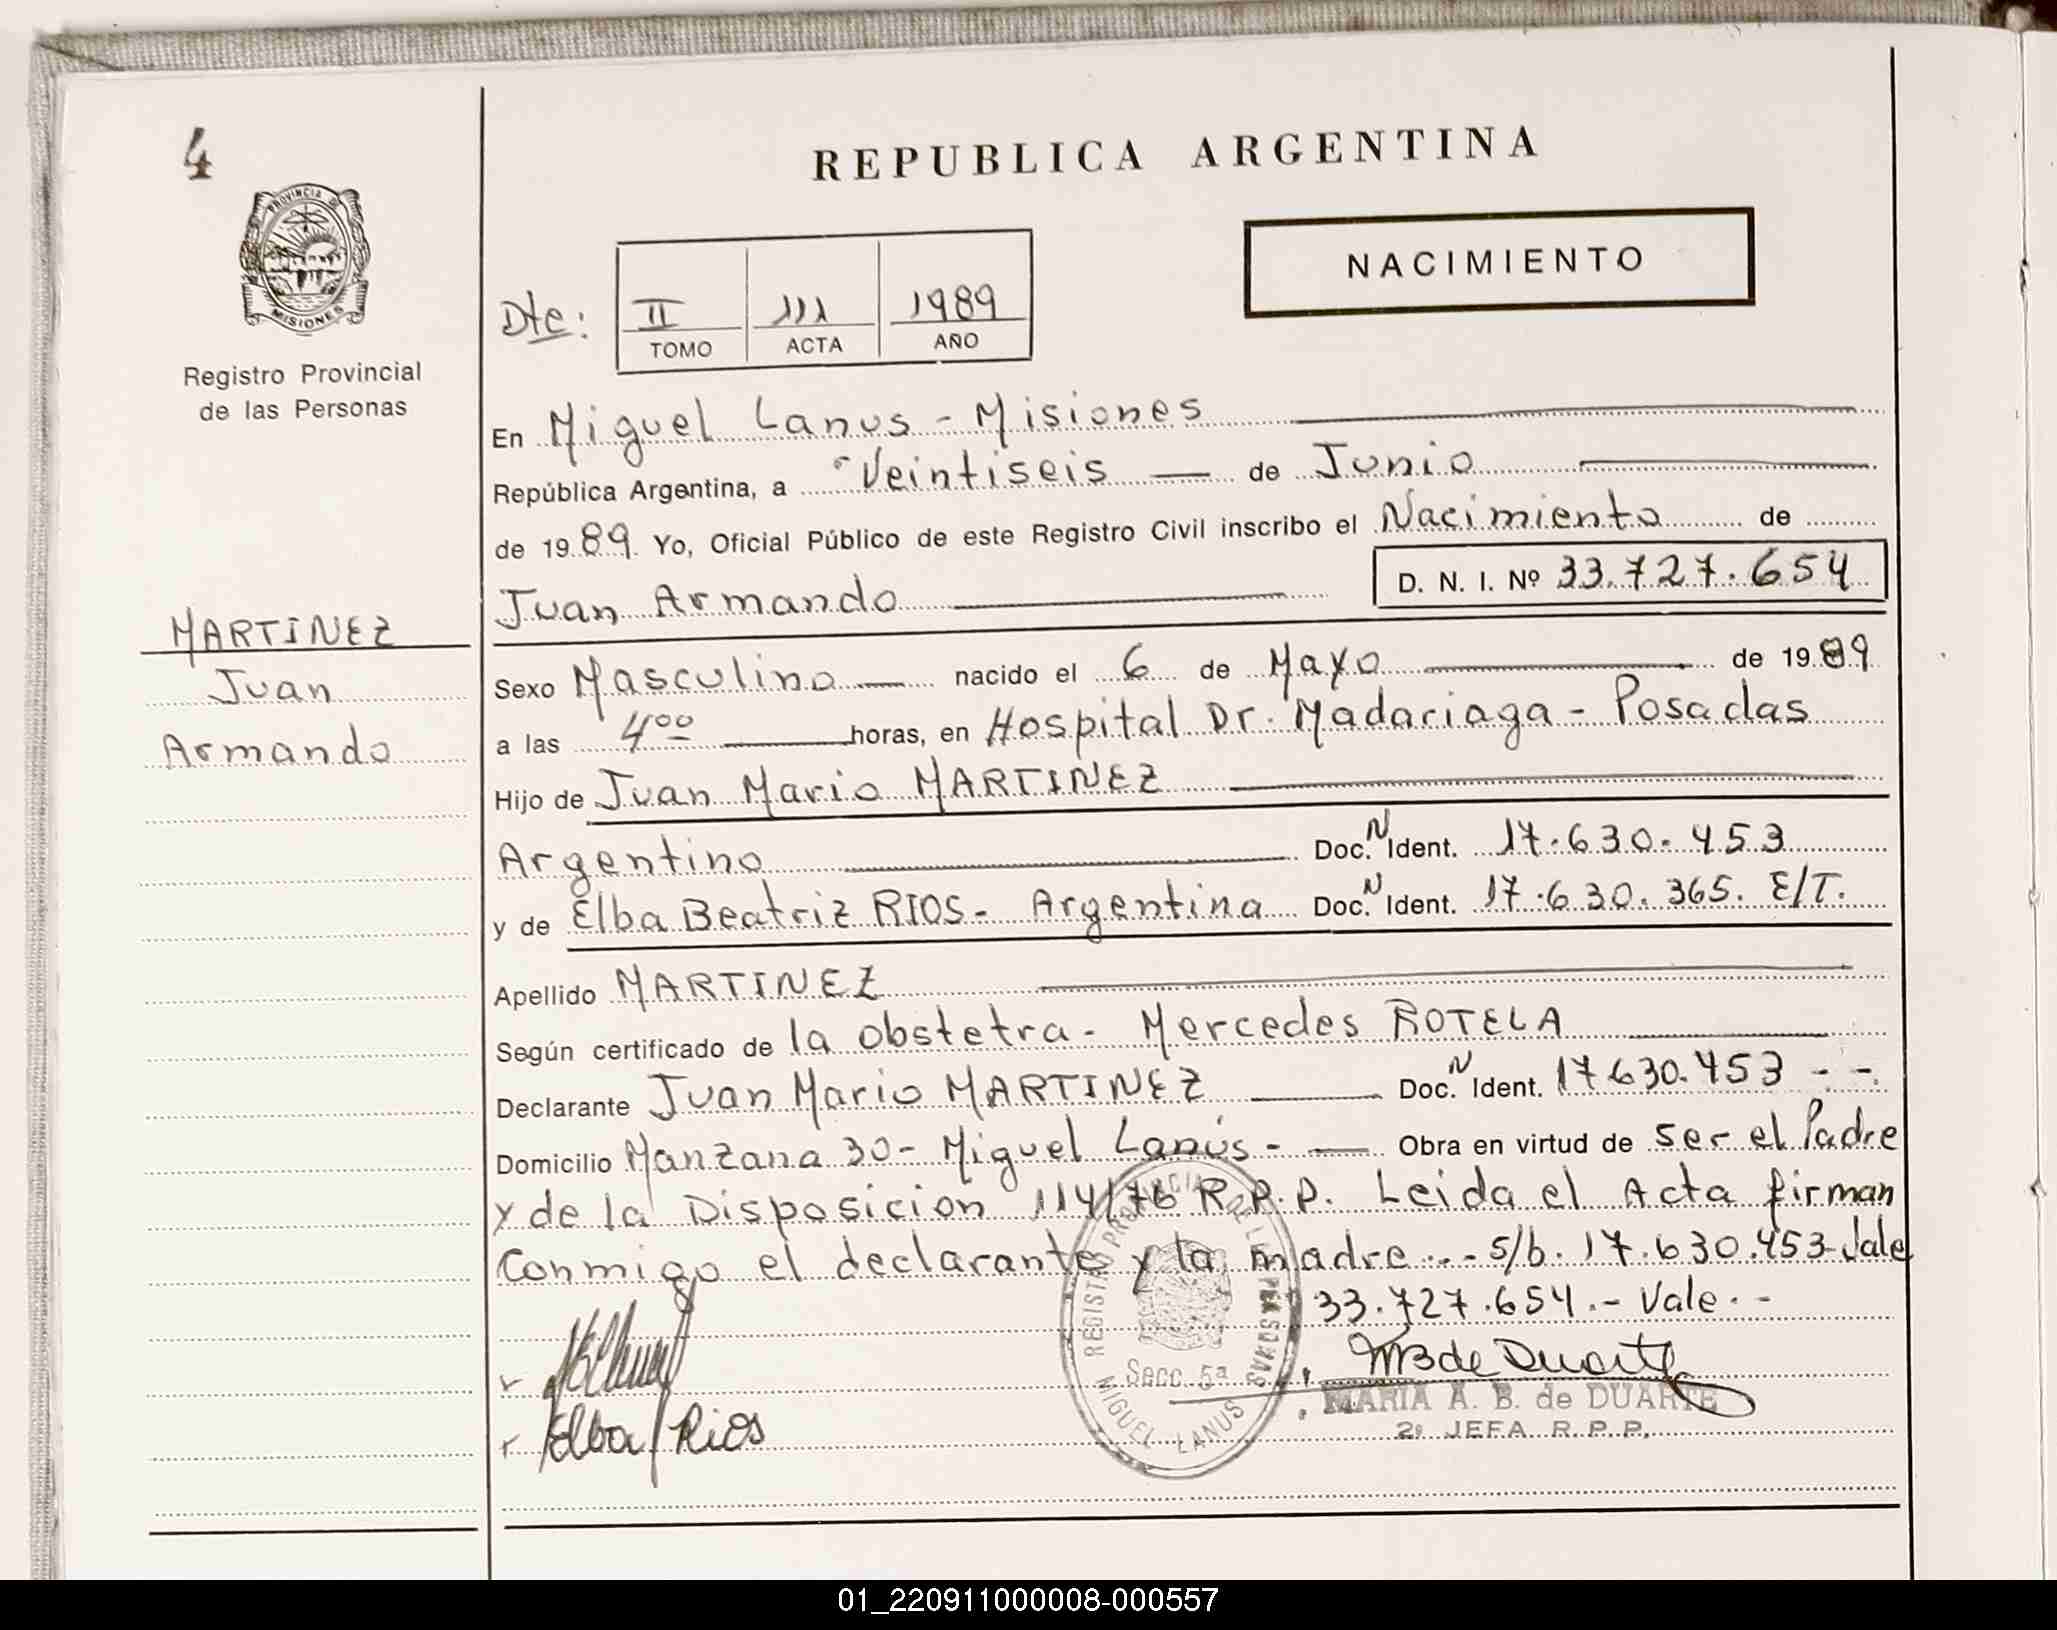 4
REPUBLICA ARGENTINA
PROVINCIA DE
MISIONES
NACIMIENTO
Dte: II 111 1989
TOMO ACTA AÑO
Registro Provincial
de las Personas
En Miguel Lanus - Misiones
República Argentina, a Veintiseis de Junio
de 1989 Yo, Oficial Público de este Registro Civil inscribo el Nacimiento de
Juan Armando D. N. I. Nº 33.727.654
MARTINEZ
Juan
Armando
Sexo Masculino nacido el 6 de Mayo de 1989
a las 4 00 horas, en Hospital Dr. Madariaga - Posadas
Hijo de Juan Mario MARTINEZ
Argentino Doc. N Ident. 17.630.453
y de Elba Beatriz RIOS - Argentina Doc. N Ident. 17.630.365. E/T.
Apellido MARTINEZ
Según certificado de la obstetra - Mercedes ROTELA
Declarante Juan Mario MARTINEZ Doc. N Ident. 17630.453 - -.
Domicilio Manzana 30 - Miguel Lanús - Obra en virtud de ser el Padre
y de la Disposicion 114/76 R.P.P. Leida el Acta firman
Conmigo el declarante y la madre..- s/b. 17.630.453-Vale
33.727.654.- Vale. -
REGISTRO PROVINCIAL DE LAS PERSONAS
Secc. 5a
MIGUEL LANUS
MB de Duarte
MARIA A. B. de DUARTE
2º JEFA R.P.P.
Elba Rios
01_220911000008-000557